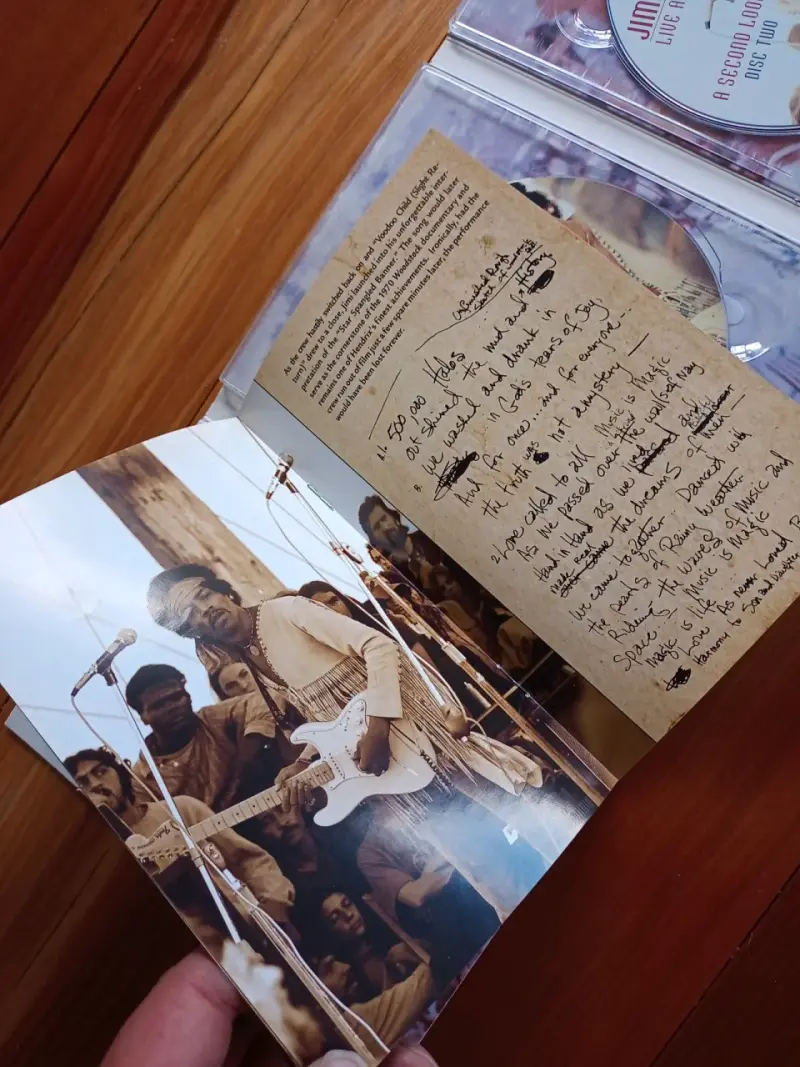 JIM
LIVE A
A SECOND LOO
DISC TWO
As the crew hastily switched back on and "Voodoo Child (Slight Re-
turn)" drew to a close, Jimi launched into his unforgettable inter-
pretation of the "Star Spangled Banner." The song would later
serve as the cornerstone of the 1970 Woodstock documentary and
remains one of Hendrix's finest achievements. Ironically, had the
crew run out of film just a few spare minutes later, the performance
would have been lost forever.
unfinished Rough
sketch of
History
500,000 Halos
out shined the mud and
we washed and drank in
in God's tears of Joy
And for once... and for everyone...
the truth was not a mystery —
2 Love called to all... Music is Magic
As we passed over the walls of Nay
Hand in Hand as we
made Real the dreams of men —
We came together.. Danced with
the pearls of Rainy weather
Riding the waves of Music and
Space... Music is Magic
Magic is life..
Love As never Loved
Harmony to Son and Daughter